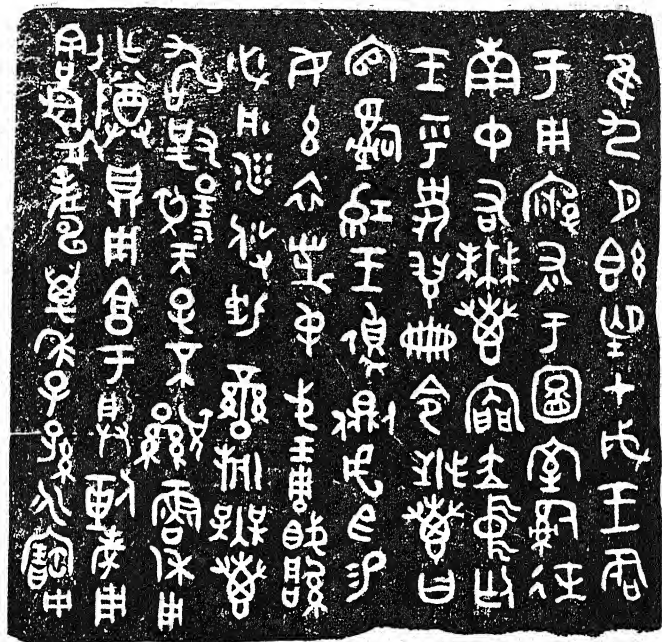 隹九月既望甲戌王各
于周廟 于圖室𤔲徒
南中右無叀內門立中廷
王乎史翏冊令無叀曰
官𤔲 王 側虎臣易
女玄衣黹屯戈琱
必彤沙攸勒䜌旂無叀
敢對揚天子不顯魯休用
乍尊鼎用享于朕剌考用
割眉壽萬年子孫永寶用